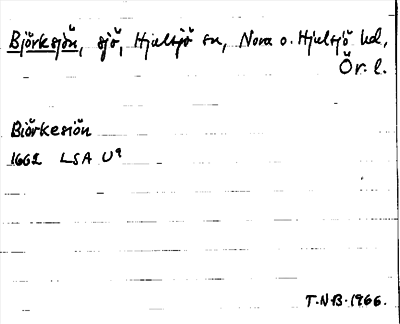 Björksjön, sjö, Hjulsjö sn, Nora o. Hjulsjö hd,
Ör. l.
Biörkesiön
1662 LSA U9
T.N-B. 1966.